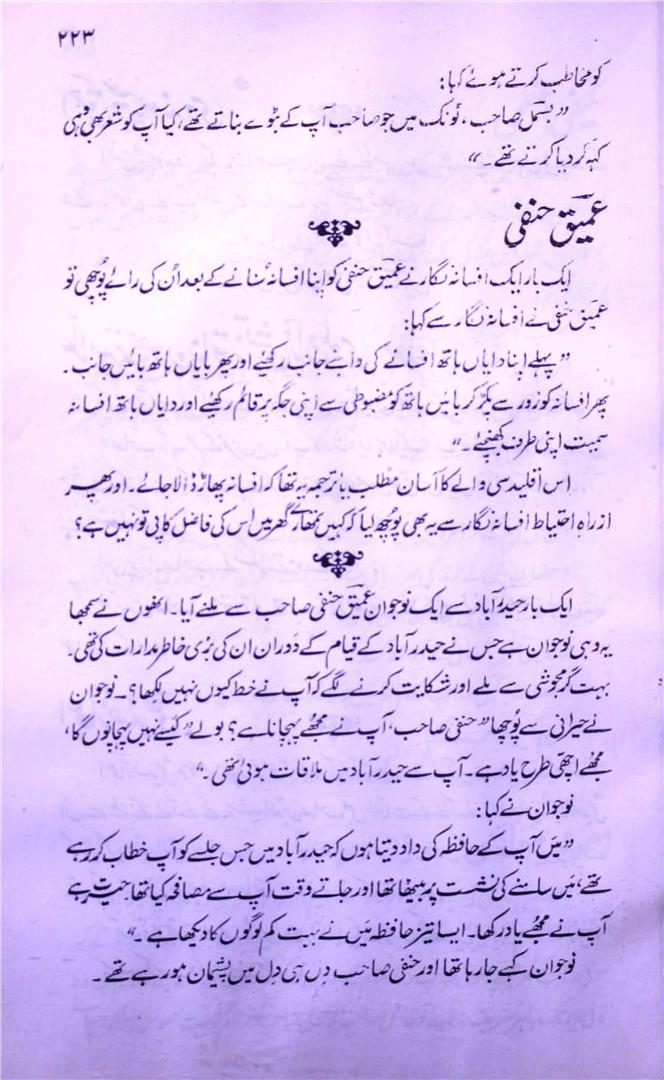 ۲۲۳
کو مخاطب کرتے ہوئے کہا:
”بسمل صاحب، ٹونک میں جو صاحب آپ کے بٹوے بناتے تھے، کیا آپ کو شعر بھی وہی
کہہ کر دیا کرتے تھے۔“
عمیق حنفی
ایک بار ایک افسانہ نگار نے عمیق حنفی کو اپنا افسانہ سُنانے کے بعد اُن کی رائے پُوچھی تو
عمیق حنفی نے افسانہ نگار سے کہا:
”پہلے اپنا دایاں ہاتھ افسانے کی داہنے جانب رکھئے اور پھر بایاں ہاتھ بائیں جانب۔
پھر افسانہ کو زور سے پکڑ کر بائیں ہاتھ کو مضبوطی سے اپنی جگہ پر قائم رکھیئے اور دایاں ہاتھ افسانہ
سمیت اپنی طرف کھینچئے۔“
اس اقلیدسی والے کا آسان مطلب یا ترجمہ یہ تھا کہ افسانہ پھاڑ ڈالا جائے۔ اور پھر
از راہِ احتیاط افسانہ نگار سے یہ بھی پُوچھ لیا کہ کہیں تمھارے گھر میں اس کی فاضل کاپی تو نہیں ہے؟
ایک بار حیدرآباد سے ایک نوجوان عمیق حنفی صاحب سے ملنے آیا۔ انھوں نے سمجھا
یہ وہی نوجوان ہے جس نے حیدرآباد کے قیام کے دَوران ان کی بڑی خاطر مدارات کی تھی۔
بہت گرمجوشی سے ملے اور شکایت کرنے لگے کہ آپ نے خط کیوں نہیں لکھا؟۔ نوجوان
نے حیرانی سے پُوچھا ”حنفی صاحب، آپ نے مجھے پہچانا ہے؟ بولے ”کیسے نہیں پہچانوں گا،
مجھے اچھی طرح یاد ہے۔ آپ سے حیدرآباد میں ملاقات ہوئی تھی۔“
نوجوان نے کہا:
”میں آپ کے حافظہ کی داد دیتا ہوں کہ حیدرآباد میں جس جلسے کو آپ خطاب کر رہے
تھے، میں سامنے کی نشست پر بیٹھا تھا اور جاتے وقت آپ سے مصافحہ کیا تھا حیرت ہے
آپ نے مجھے یاد رکھا۔ ایسا تیز حافظہ میں نے بہت کم لوگوں کا دیکھا ہے۔“
نوجوان کہے جا رہا تھا اور حنفی صاحب دل ہی دل میں پشیمان ہو رہے تھے۔